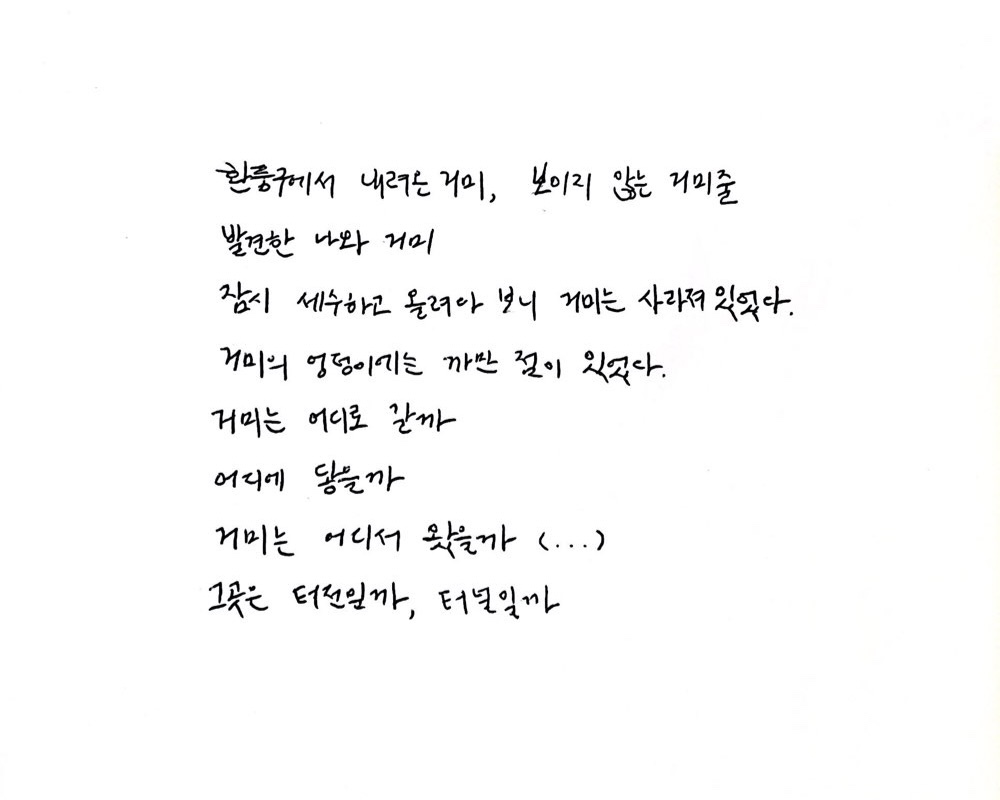 환풍구에서 내려온 거미, 보이지 않는 거미줄
발견한 나와 거미
잠시 세수하고 올려다 보니 거미는 사라져 있었다.
거미의 엉덩이에는 까만 점이 있었다.
거미는 어디로 갈까
어디에 닿을까
거미는 어디서 왔을까 (...)
그곳은 터전일까, 터널일까